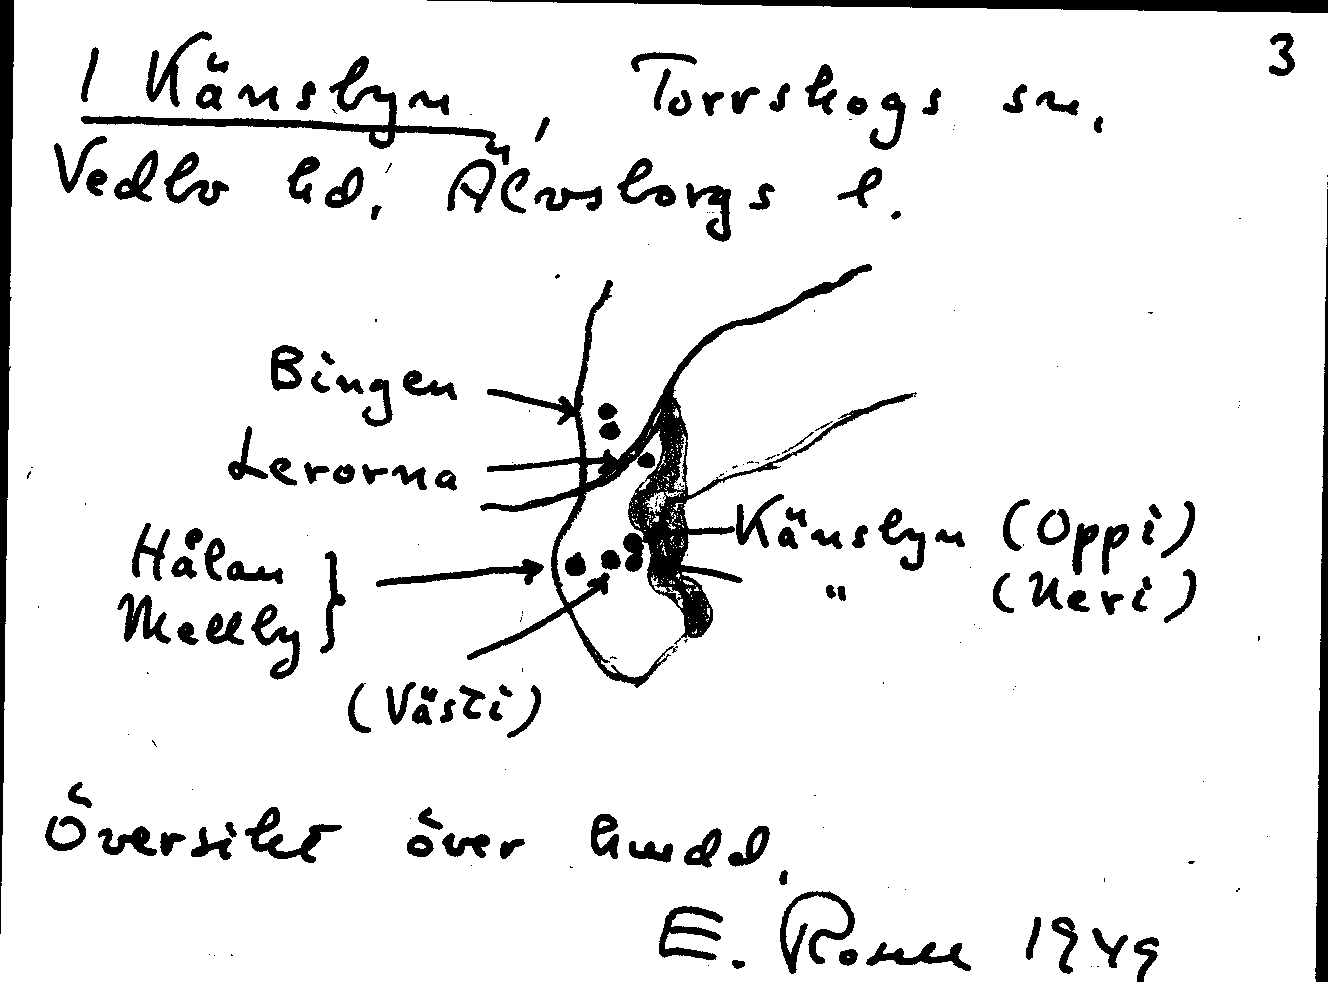 3
1 Känsbyn, Torrskogs sn,
Vedbo hd, Älvsborgs l.
Bingen
Lerorna
Känsbyn (Oppi)
Hålan
" (Neri)
Mellby
(Västi)
Översikt över
E. 1949